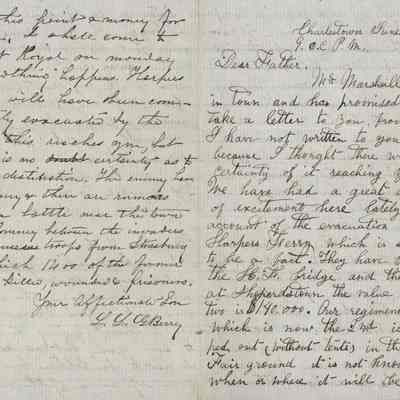 this point & money for
I shall come to
Royal on monday
nothing happens. Harpers
will have been com-
by evacuated by the
this reaches you, but
is no doubt certainty as to
distribution. The enemy have
& there are rumors
battle near thisburg
between the invaders
troops from Strasburg
which 1400 of the former
killed, wounded & prisoners.
Your Affectionate Son
Charlestown June
9. OC P. M.
Dear Father,
Mr Marshall
in Town, and has promised
take a letter to you, prov
I have not written to you
because I thought there w
certainty of it reaching y
We have had a great d
of excitement here lately
account of the evacuation
Harpers Ferry which is s
to be a fact. They have
the H. F. bridge and th
at Shepherdstown the value
two is $140.000. Our regimen
which is now the 2nd is
ped out (without tents) in th
Fair ground it is not know
when or where it will be